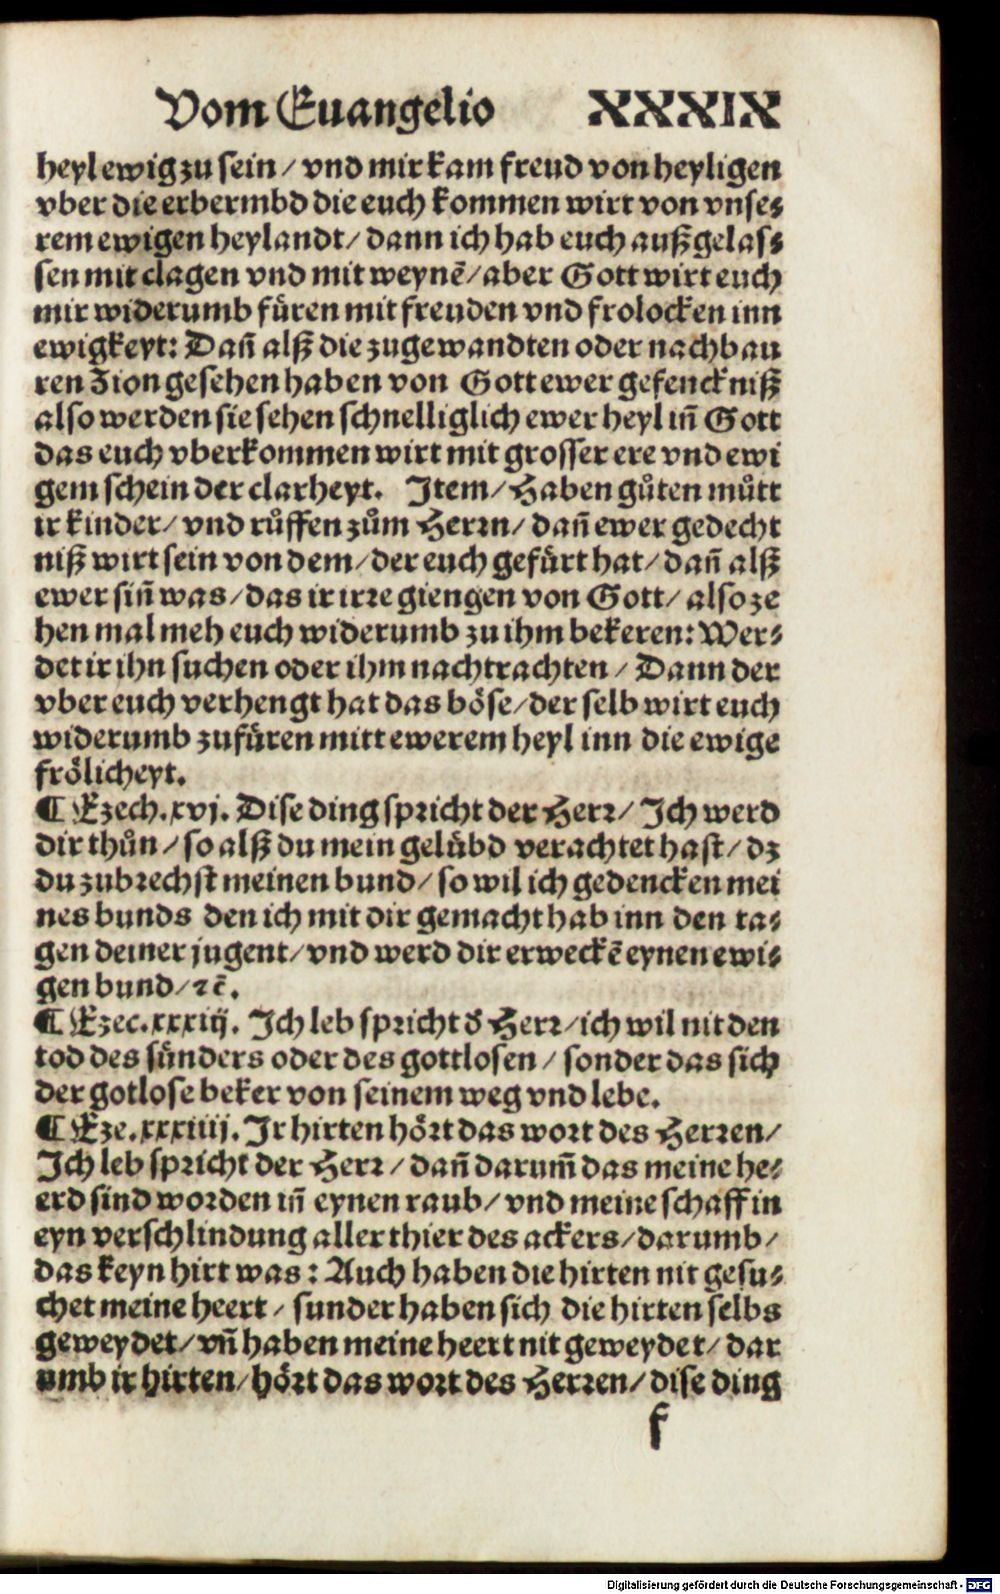 Vom Euangelio XXXIX
heyl ewig zu sein / vnd mir kam freud von heyligen
vber die erbermbd die euch kommen wirt von vnse⸗
rem ewigen heylandt / dann ich hab euch außgelas⸗
sen mit clagen vnd mit weynē / aber Gott wirt euch
mir widerumb fuͤren mit freuden vnd frolocken inn
ewigkeyt: Dañ alß die zugewandten oder nachbau
ren Zion gesehen haben von Gott ewer gefenckniß
also werden sie sehen schnelliglich ewer heyl iñ Gott
das euch vberkommen wirt mit grosser ere vnd ewi
gem schein der clarheyt. Item / Haben gůten můtt
ir kinder / vnd růffen zům Herrn / dañ ewer gedecht
niß wirt sein von dem / der euch gefuͤrt hat / dañ alß
ewer siñ was / das ir irre giengen von Gott / also ze
hen mal meh euch widerumb zu ihm bekeren: Wer⸗
det ir ihn suchen oder ihm nachtrachten / Dann der
vber euch verhengt hat das boͤse / der selb wirt euch
widerumb zufuͤren mitt ewerem heyl inn die ewige
froͤlicheyt.
¶ Ezech. xvj. Dise ding spricht der Herr / Ich werd
dir thůn / so alß du mein geluͤbd verachtet hast / dz
du zubrechst meinen bund / so wil ich gedencken mei
nes bunds den ich mit dir gemacht hab inn den ta⸗
gen deiner jugent / vnd werd dir erweckē eynen ewi⸗
gen bund / ꝛcē.
¶ Ezec. xxxiij. Ich leb spricht d̕ Herr / ich wil nit den
tod des suͤnders oder des gottlosen / sonder das sich
der gotlose beker von seinem weg vnd lebe.
¶ Eze. xxxiiij. Ir hirten hoͤrt das wort des Herren /
Ich leb spricht der Herr / dañ darum̃ das meine he⸗
erd sind worden iñ eynen raub / vnd meine schaff in
eyn verschlindung aller thier des ackers / darumb /
das keyn hirt was: Auch haben die hirten nit gesu⸗
chet meine heert / sunder haben sich die hirten selbs
geweydet / vñ haben meine heert nit geweydet / dar
umb ir hirten / hoͤrt das wort des Herren / dise ding
f
Digitalisierung gefördert durch die Deutsche Forschungsgemeinschaft - DFG